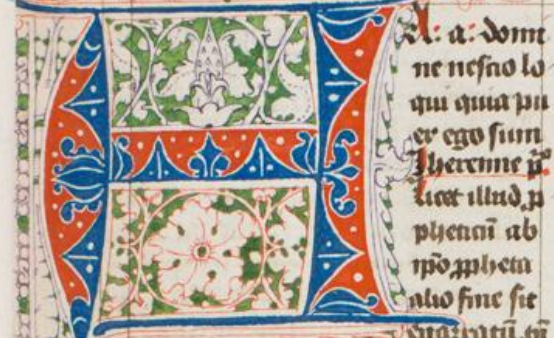 A: a: dom̅
ne nescio lo
qui quia pu
er ego sum
Jheremie p̅
licet illud ꝓ
pheticū ab
ip̅o ꝓpheta
alio fine sit